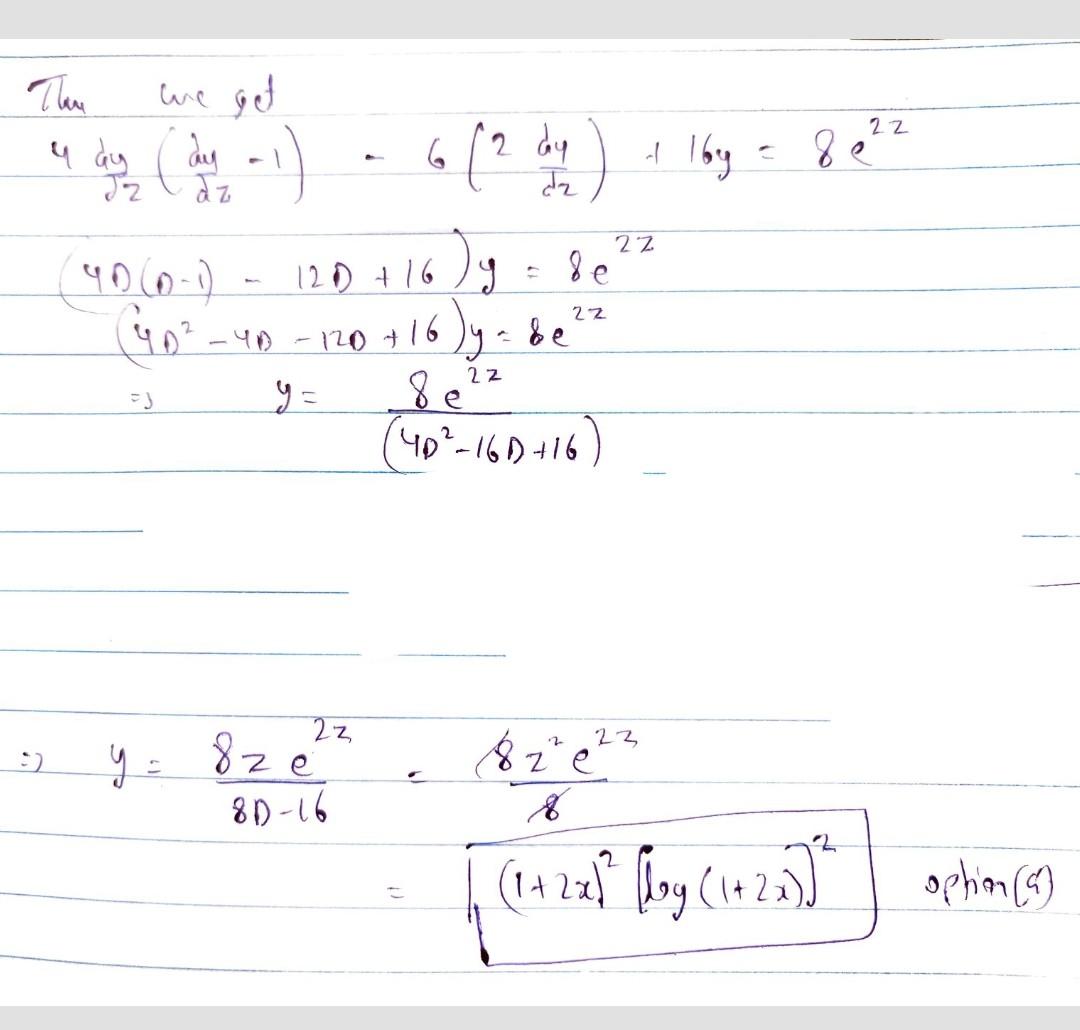 Then we get
4 dy/dz (dy/dz - 1) - 6 (2 dy/dz) + 16y = 8e^{2z}
(4D(D-1) - 12D + 16)y = 8e^{2z}
(4D² - 4D - 12D + 16)y = 8e^{2z}
=> y = 8e^{2z} / (4D² - 16D + 16)
=> y = 8ze^{2z} / (8D - 16) = 8z²e^{2z} / 8
= (1+2x)² [log(1+2x)]² option(a)